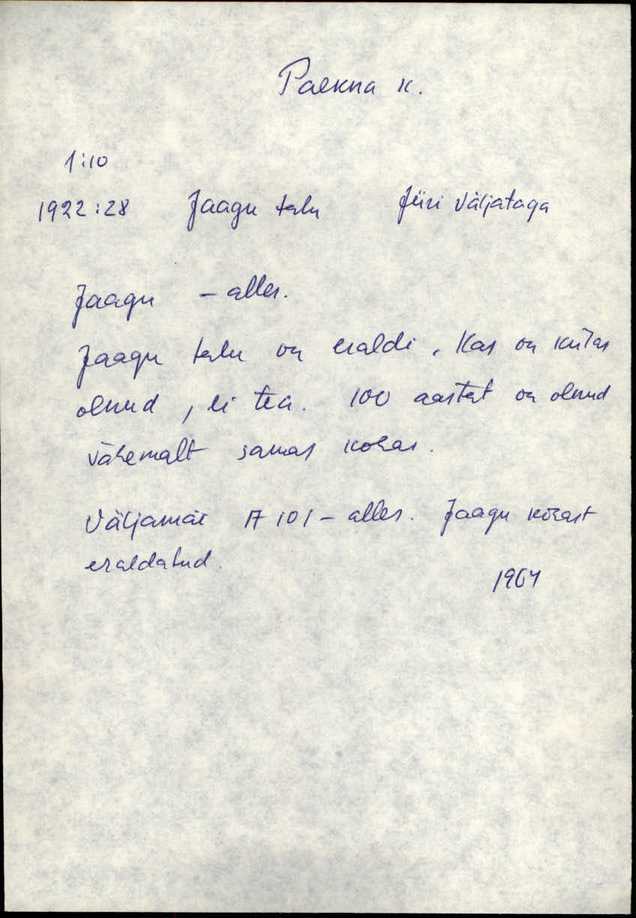 Paekna k.
1:10
1922:28 Jaagu talu Jüri Väljataga
Jaagu – alles.
Jaagu talu on eraldi. Kas on külas
olnud, ei tea. 100 aastat on olnud
vähemalt samas kohas.
Väljamäe A 101 – alles. Jaagu kohast
eraldatud.
1964